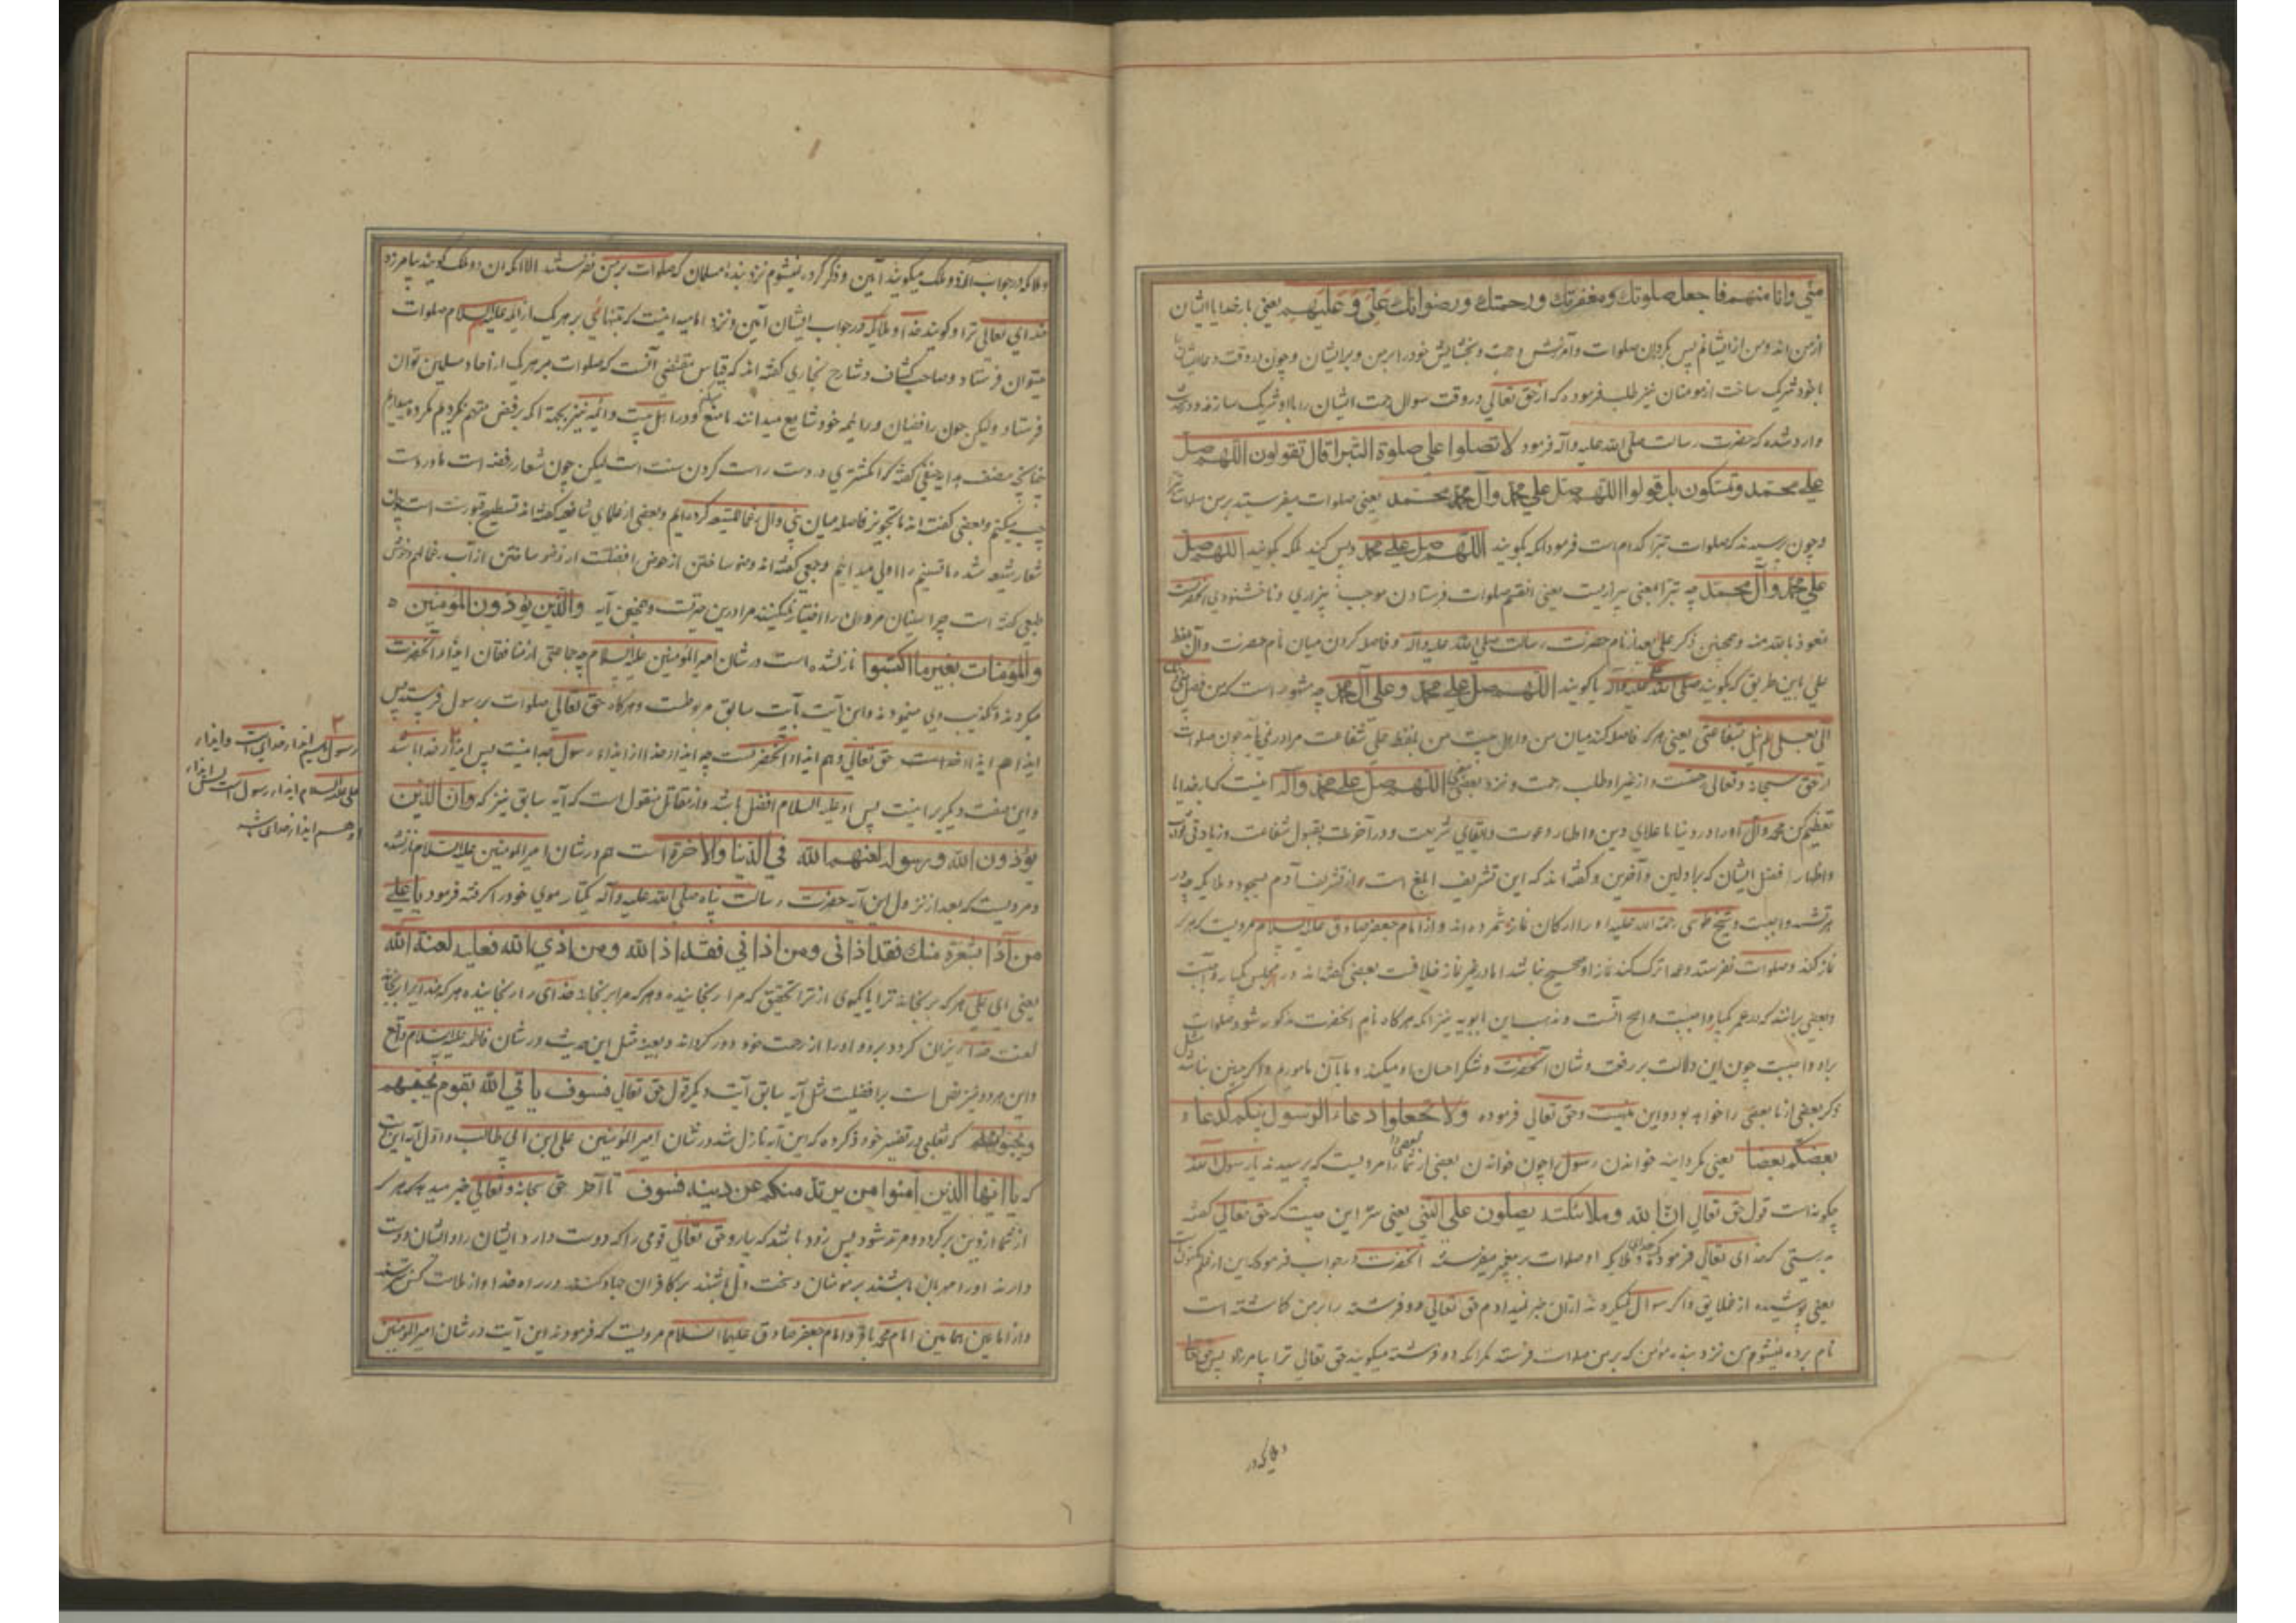 مني وانا منهم فاجعل صلوتك ومغفرتك ورحمتك ورضوانك علي وعليهم يعني بار خدايا ايشان
از من اند و من از ايشانم پس بكردان صلوات و آمرزش و رحمت و بخشايش خود را بر من و بر ايشان و چون در وقت دعا ايشان
با خود شريك ساخت از مومنان نيز طلب فرموده كه از حق تعالي در وقت سوال رحمت ايشان را با او شريك سازند و در حديث
وارد شده كه حضرت رسالت صلي الله عليه وآله فرمود لا تصلوا علي صلوة التبرا قال تقولون اللهم صل
علي محمد وتسكون بل قولوا اللهم صل علي محمد وآل محمد يعني صلوات ميفرستيد بر من صلوات
و چون پرسيدند كه صلوات تبرا كدام است فرمود آنكه بكويند اللهم صل علي محمد و بس كنيد بلكه كوئيد اللهم صل
علي محمد وآل محمد چه تبرا بمعني بيزاريست يعني اينقسم صلوات فرستادن موجب بيزاري و ناخشنودي آنحضرتست
نعوذ بالله منه و همچنين ذكر علي بعد از نام حضرت رسالت صلي الله عليه وآله و فاصله كردن ميان نام حضرت و آل بلفظ
علي باين طريق كه كويند صلي الله عليه وآله يا كويند اللهم صل علي محمد وعلي آل محمد چه مشهور است كه من فصل بيني
آلي بعلي لم ينل شفاعتي يعني هر كه فاصله كند ميان من و اهل بيت من بلفظ علي شفاعت مرا در نمي يابد چون صلوات
از حق سبحانه وتعالي رحمتست و از غير او طلب رحمت و نزد بعضي معني اللهم صل علي محمد وآله اينست كه بار خدايا
تعظيم كن محمد وآل او را در دنيا باعلاي دين و اظهار دعوت و ابقاي شريعت و در آخرت بقبول شفاعت و زيادتي ثواب
و اظهار فضل ايشان كه بر اولين و آخرين و كفته اند كه اين تشريف ابلغ است از تشريف آدم بسجود ملايكه چه در
هر تشهد واجبست و شيخ طوسي رحمة الله عليه او را از اركان نماز شمرده اند و از امام جعفر صادق عليه السلام مرويست كه هر كه
نماز كند و صلوات نفرستد و عمدا ترك كند نماز او صحيح نباشد اما در غير نماز خلافست بعضي كفته اند در مجلس يكبار واجبست
و بعضي برانند كه در عمر يكبار واجبست و اصح آنست و مذهب ابن بابويه نيز آنكه هر كاه نام آنحضرت مذكور شود صلوات
براو واجبست چون اين دلالت بر رفعت شان آنحضرت و شكر احسان او ميكند و ما بآن مامورم و اكر چنين نباشد مثل
ذكر بعضي از ما بعضي را خواهد بود و اين نيست و حق تعالي فرموده ولا تجعلوا دعاء الرسول بينكم كدعاء
بعضكم بعضا يعني مكردانيد خواندن رسول را چون خواندن بعضي از شما بعضي را مرويست كه پرسيدند يا رسول الله
چكونه است قول حق تعالي ان الله وملائكته يصلون علي النبي يعني سر اين چيست كه حق تعالي كفته
بدرستي كه خداي تعالي فرموده كه خداي و ملايكه او صلوات بر پيغمبر ميفرستند آنحضرت در جواب فرمود كه اين از علم مكنونست
يعني پوشيده از خلايق و اكر سوال نميكرديد از آن خبر نميدادم حق تعالي دو فرشته را بر من كماشته است
نام برده نميشوم من نزد بنده مؤمن كه بر من صلوات فرستد مكر آنكه دو فرشته ميكويند حق تعالي ترا بيامرزد پس حق تعالي
و ملايكه در
و ملايكه در جواب آن دو ملك ميكويند آمين و ذكر كرده نميشوم نزد بنده مسلمان كه صلوات بر من نفرستد الا آنكه آن دو ملك كويند بيامرزد
خداي تعالي ترا و كويند خدا و ملايكه در جواب ايشان آمين و نزد اماميه اينست كه بتنهائي بر هر يك از ائمه عليه السلام صلوات
ميتوان فرستاد و صاحب كشاف و شارح بخاري كفته اند كه قياس مقتضي آنست كه صلوات بر هر يك از آحاد مسلمين توان
فرستاد وليكن چون رافضيان در ائمه خود شايع ميدانند ما منع ميكنيم و در اهل بيت و ائمه نيز بجهة آنكه برفض متهم نكرديم مكروه ميداريم
چنانچه مصنف هدايه حنفي كفته كه انكشتري در دست راست كردن سنت است ليكن چون شعار رفضه است ما در دست
چپ ميكنيم و بعضي كفته اند ما تجويز فاصله ميان نبي و آل رغما للشيعه كرده ايم و بعضي از علماي شافعيه كفته اند تسطيح قبور سنت است چون
شعار شيعه شده ما تسنيم را اولي ميدانيم و جمعي كفته اند وضو ساختن از حوض افضلست از وضو ساختن از آب
طبعي كفته است چرا سنيان مروان را اختيار نميكنند مرا درين حيرتست و همچنين آيه والذين يؤذون المؤمنين
والمؤمنات بغير ما اكتسبوا نازل شده است در شان امير المؤمنين عليه السلام چه جماعتي از منافقان ايذاء آنحضرت
ميكردند و تكذيب وي مينمودند و اين آيت بآيت سابق مربوطست و هر كاه حق تعالي صلوات بر رسول فرستد پس
ايذا هم ايذاء خداست حق تعالي و هم ايذاء آنحضرتست چه ايذاء خدا از ايذاء رسول جدا نيست پس ايذاء خدا باشد
و اين صفت ديكريرا نيست پس او عليه السلام افضل باشد و از مقاتل منقول است كه آيه سابق نيز كه وان الذين
يؤذون الله ورسوله لعنهم الله في الدنيا والآخرة است هم در شان امير المؤمنين عليه السلام نازلشده
و مرويست كه بعد از نزول اين آيه حضرت رسالت پناه صلي الله عليه وآله يكتار موي خود را كرفته فرمود يا علي
من آذا بشعرة منك فقد اذاني ومن اذاني فقد اذ الله ومن اذي الله فعليه لعنة الله
يعني اي علي هر كه برنجاند ترا بيكموي از تو بتحقيق كه مرا رنجانيده و هر كه مرا برنجاند خداي را رنجانيده هر كه خدايرا برنجاند
لعنت خدا ريزان كردد برو و او را از رحمت خود دور كرداند و بعينه مثل اين حديث در شان فاطمه عليها السلام واقع
و اين هر دو نيز نص است بر افضليت مثل آيه سابق آيت ديكر قول حق تعالي فسوف ياتي الله بقوم يحبهم
ويحبونه كه ثعلبي در تفسير خود ذكر كرده كه اين آيه نازل شد در شان امير المؤمنين علي ابن ابي طالب و اول آيه اين است
كه يا ايها الذين آمنوا من يرتد منكم عن دينه فسوف تا آخر حق سبحانه وتعالي خبر ميدهد كه هر كه
از شما از دين بر كردد و مرتد شود پس زود باشد كه بيارد حق تعالي قومي را كه دوست دارد ايشان را و ايشان دوست
دارند او را مهربان باشند بر مومنان و سخت دل باشند بر كافران جهاد كنند در راه خدا و از ملامت كس نترسند
و از امامين همامين امام محمد باقر و امام جعفر صادق عليهما السلام مرويست كه فرمودند اين آيت در شان امير المؤمنين
رسول هم ايذاء خداي است و ايذاء
علي عليه السلام ايذاء رسول است پس ايذاء
او هم ايذاء خداي باشد